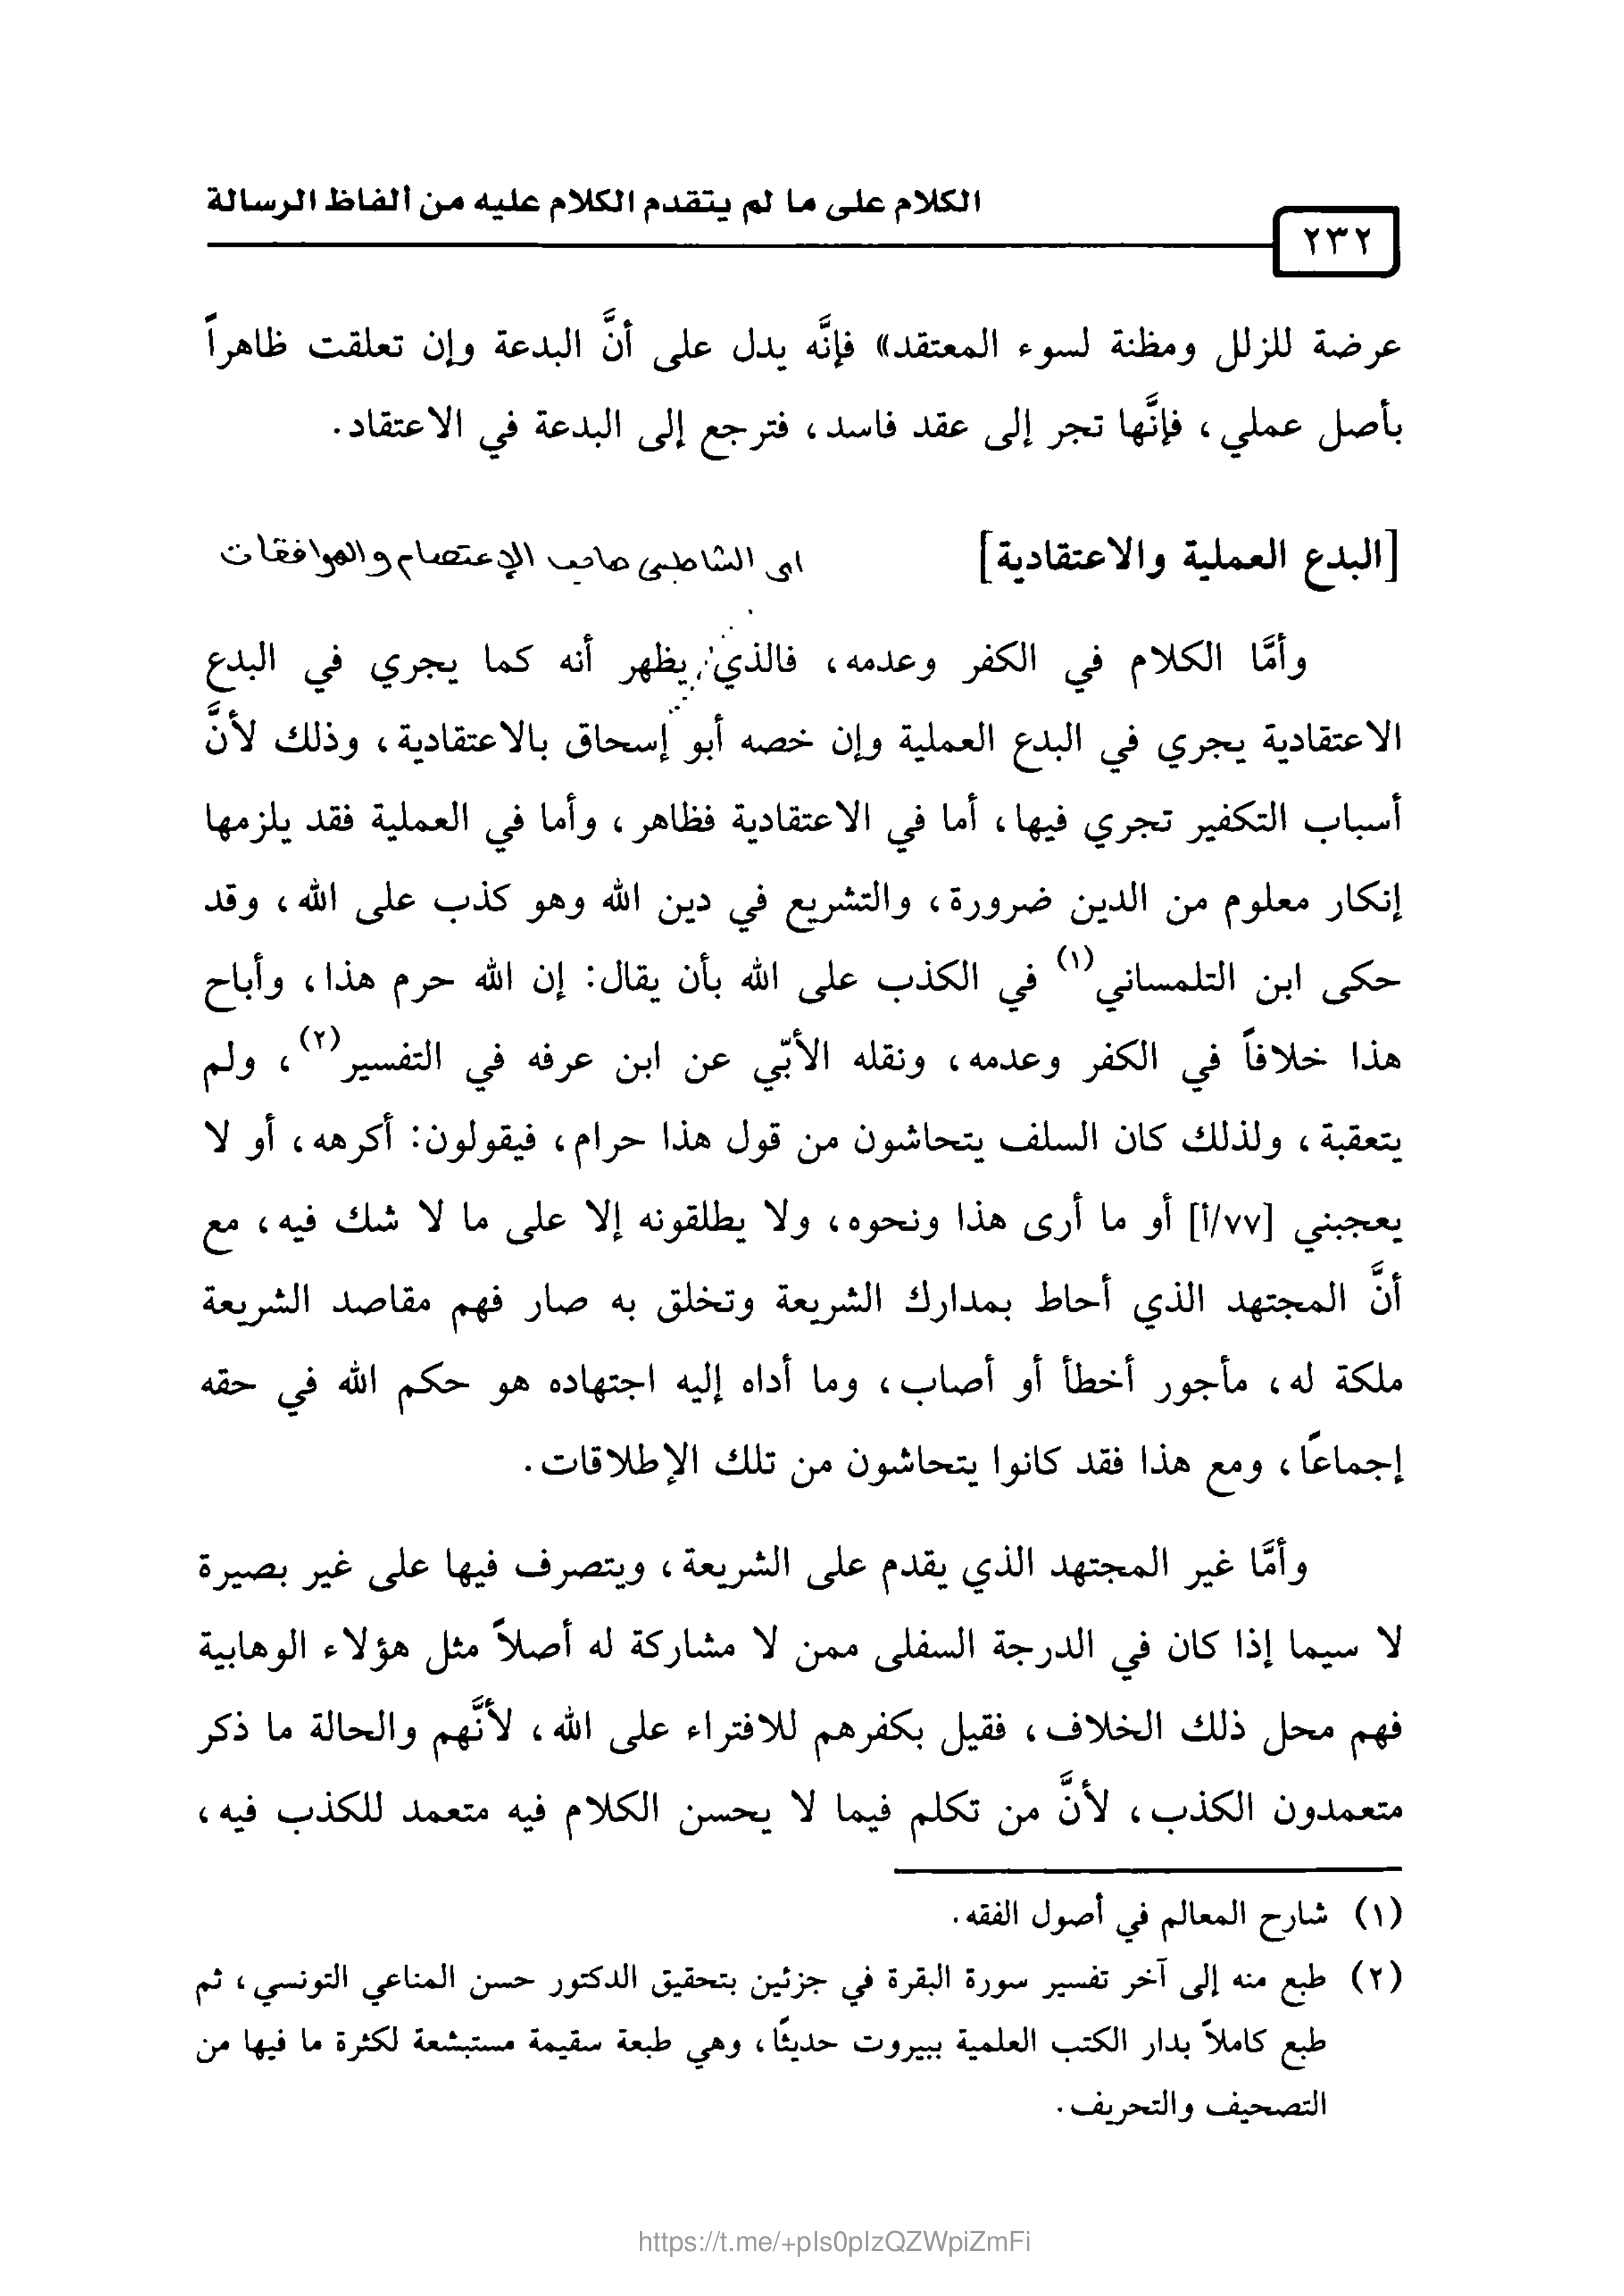 الكلام على ما لم يتقدم الكلام عليه من ألفاظ الرسالة
٢٣٢
عرضة للزلل ومظنة لسوء المعتقد» فإنَّه يدل على أنَّ البدعة وإن تعلقت ظاهراً
بأصل عملي، فإنَّها تجر إلى عقد فاسد، فترجع إلى البدعة في الاعتقاد.
[البدع العملية والاعتقادية]
اى الشاطبى صاحب الإعتصام والموافقات
وأمَّا الكلام في الكفر وعدمه، فالذي يظهر أنه كما يجري في البدع
الاعتقادية يجري في البدع العملية وإن خصه أبو إسحاق بالاعتقادية، وذلك لأنَّ
أسباب التكفير تجري فيها، أما في الاعتقادية فظاهر، وأما في العملية فقد يلزمها
إنكار معلوم من الدين ضرورة، والتشريع في دين الله وهو كذب على الله، وقد
حكى ابن التلمساني(١) في الكذب على الله بأن يقال: إن الله حرم هذا، وأباح
هذا خلافاً في الكفر وعدمه، ونقله الأبّي عن ابن عرفه في التفسير(٢)، ولم
يتعقبة، ولذلك كان السلف يتحاشون من قول هذا حرام، فيقولون: أكرهه، أو لا
يعجبني [٧٧/أ] أو ما أرى هذا ونحوه، ولا يطلقونه إلا على ما لا شك فيه، مع
أنَّ المجتهد الذي أحاط بمدارك الشريعة وتخلق به صار فهم مقاصد الشريعة
ملكة له، مأجور أخطأ أو أصاب، وما أداه إليه اجتهاده هو حكم الله في حقه
إجماعًا، ومع هذا فقد كانوا يتحاشون من تلك الإطلاقات.
وأمَّا غير المجتهد الذي يقدم على الشريعة، ويتصرف فيها على غير بصيرة
لا سيما إذا كان في الدرجة السفلى ممن لا مشاركة له أصلاً مثل هؤلاء الوهابية
فهم محل ذلك الخلاف، فقيل بكفرهم للافتراء على الله، لأنَّهم والحالة ما ذكر
متعمدون الكذب، لأنَّ من تكلم فيما لا يحسن الكلام فيه متعمد للكذب فيه،
(١) شارح المعالم في أصول الفقه.
(٢) طبع منه إلى آخر تفسير سورة البقرة في جزئين بتحقيق الدكتور حسن المناعي التونسي، ثم
طبع كاملاً بدار الكتب العلمية ببيروت حديثًا، وهي طبعة سقيمة مستبشعة لكثرة ما فيها من
التصحيف والتحريف.
https://t.me/+pIs0pIzQZWpiZmFi